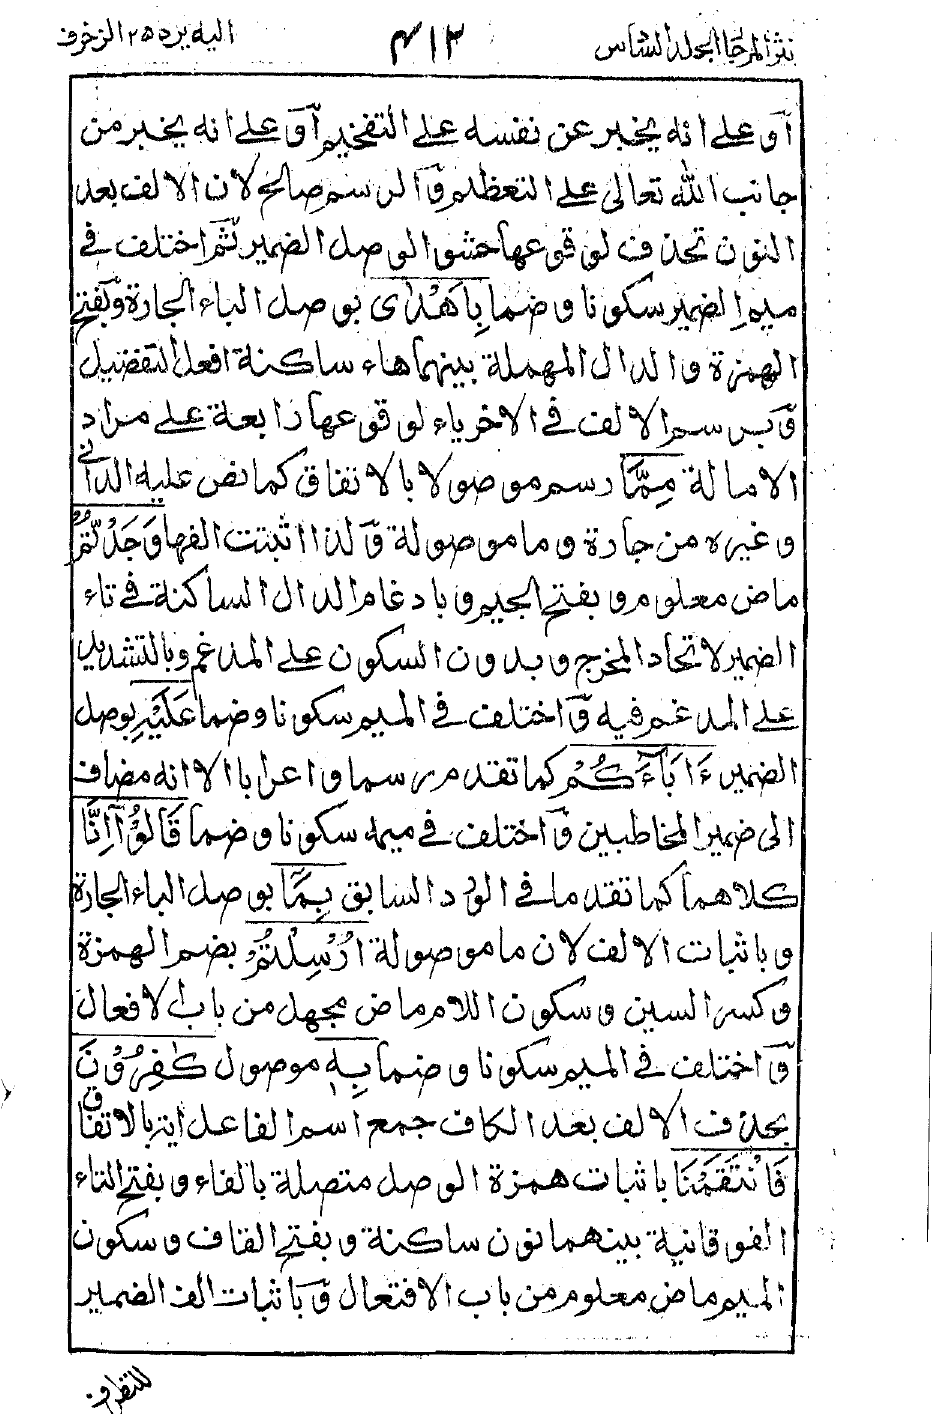 نثر المرجان المجلد السادس
٤١٣
اليه يرد ٢٥ الزخرف
او على انه يخبر عن نفسه على التفخيم او على انه يخبر من
جانب الله تعالى على التعظيم والرسم صالح لان الالف بعد
النون تحذف لوقوعها حشوا لوصل الضمير ثم اختلف في
ميم الضمير سكونا وضما بِاَهْدٰى بوصل الباء الجارة وبفتح
الهمزة والدال المهملة بينهما هاء ساكنة افعل التفضيل
وبرسم الالف في الاخر ياء لوقوعها رابعة على مراد
الامالة مِمَّا رسم موصولا بالاتفاق كما نص عليه الداني
وغيره من جارة وما موصولة ولذا اثبتت الفها وَجَدْتُّمْ
ماض معلوم وبفتح الجيم وبادغام الدال الساكنة في تاء
الضمير لاتحاد المخرج وبدون السكون على المدغم وبالتشديد
على المدغم فيه واختلف في الميم سكونا وضما عَلَيْهِ بوصل
الضمير ءَابَآءَكُمْ كما تقدم رسما واعرابا الا انه مضاف
الى ضمير المخاطبين واختلف في ميمه سكونا وضما قَالُوْآ اِنَّا
كلاهما كما تقدما في الورد السابق بِمَآ بوصل الباء الجارة
وباثبات الالف لان ما موصولة اُرْسِلْتُمْ بضم الهمزة
وكسر السين وسكون اللام ماض مجهل من باب الافعال
واختلف في الميم سكونا وضما بِهٖ موصول كٰفِرُوْنَ
بحذف الالف بعد الكاف جمع اسم الفاعل ايتر بالاتفاق
فَانْتَقَمْنَا باثبات همزة الوصل متصلة بالفاء وبفتح التاء
الفوقانية بينهما نون ساكنة وبفتح القاف وسكون
الميم ماض معلوم من باب الافتعال وباثبات الف الضمير